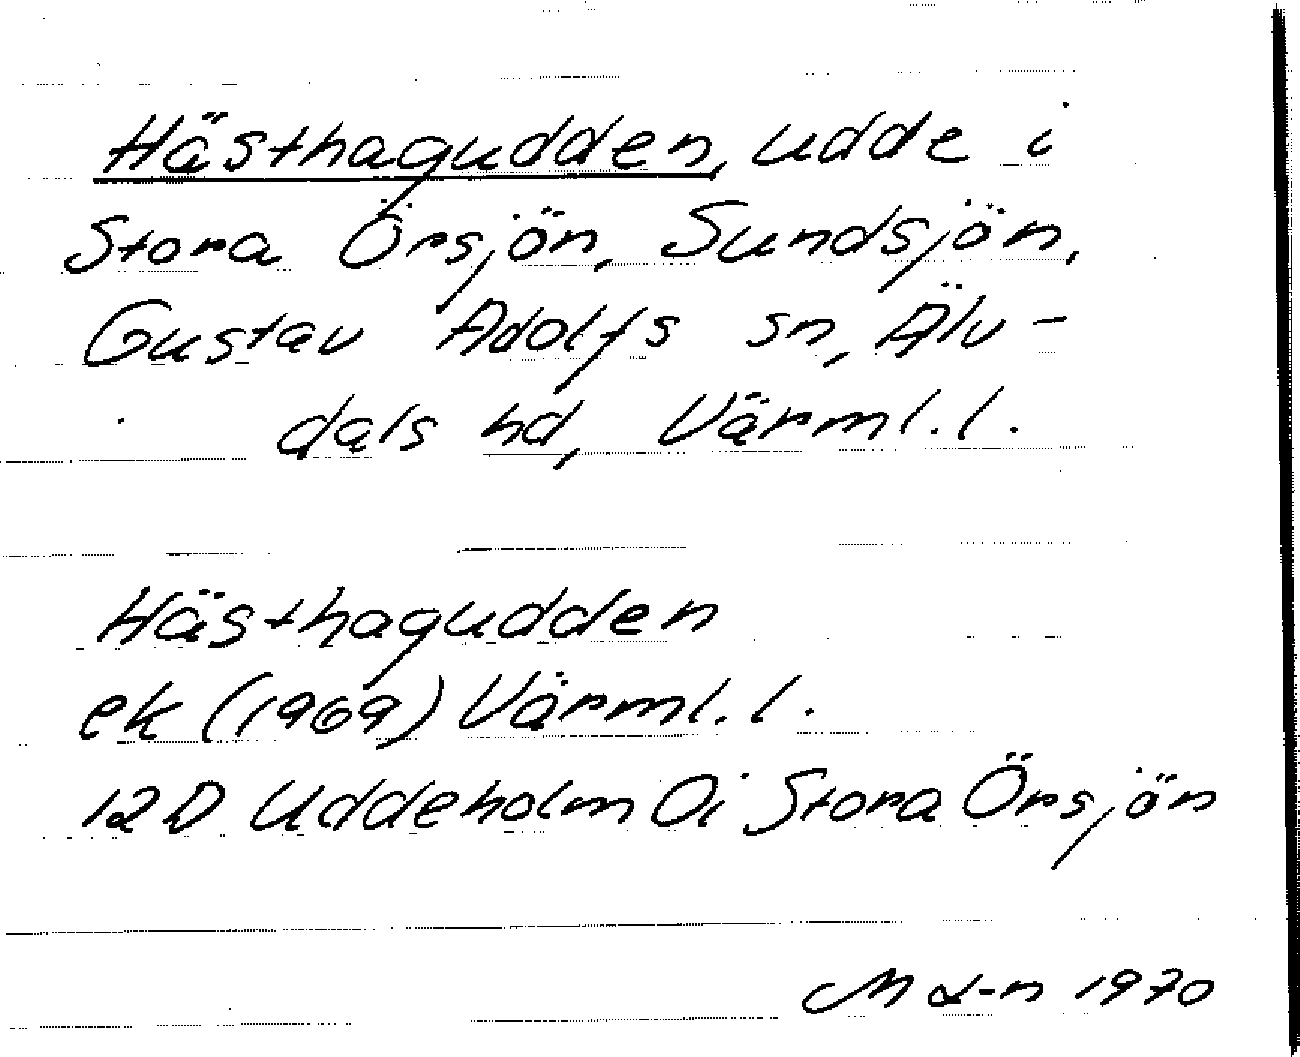 Hästhagudden, udde i
Stora Örsjön, Sundsjön,
Gustav Adolfs sn, Älv-
dals hd, Värml. l.
Hästhagudden
ek (1969) Värml. l.
12D Uddeholm Oi Stora Örsjön
1970